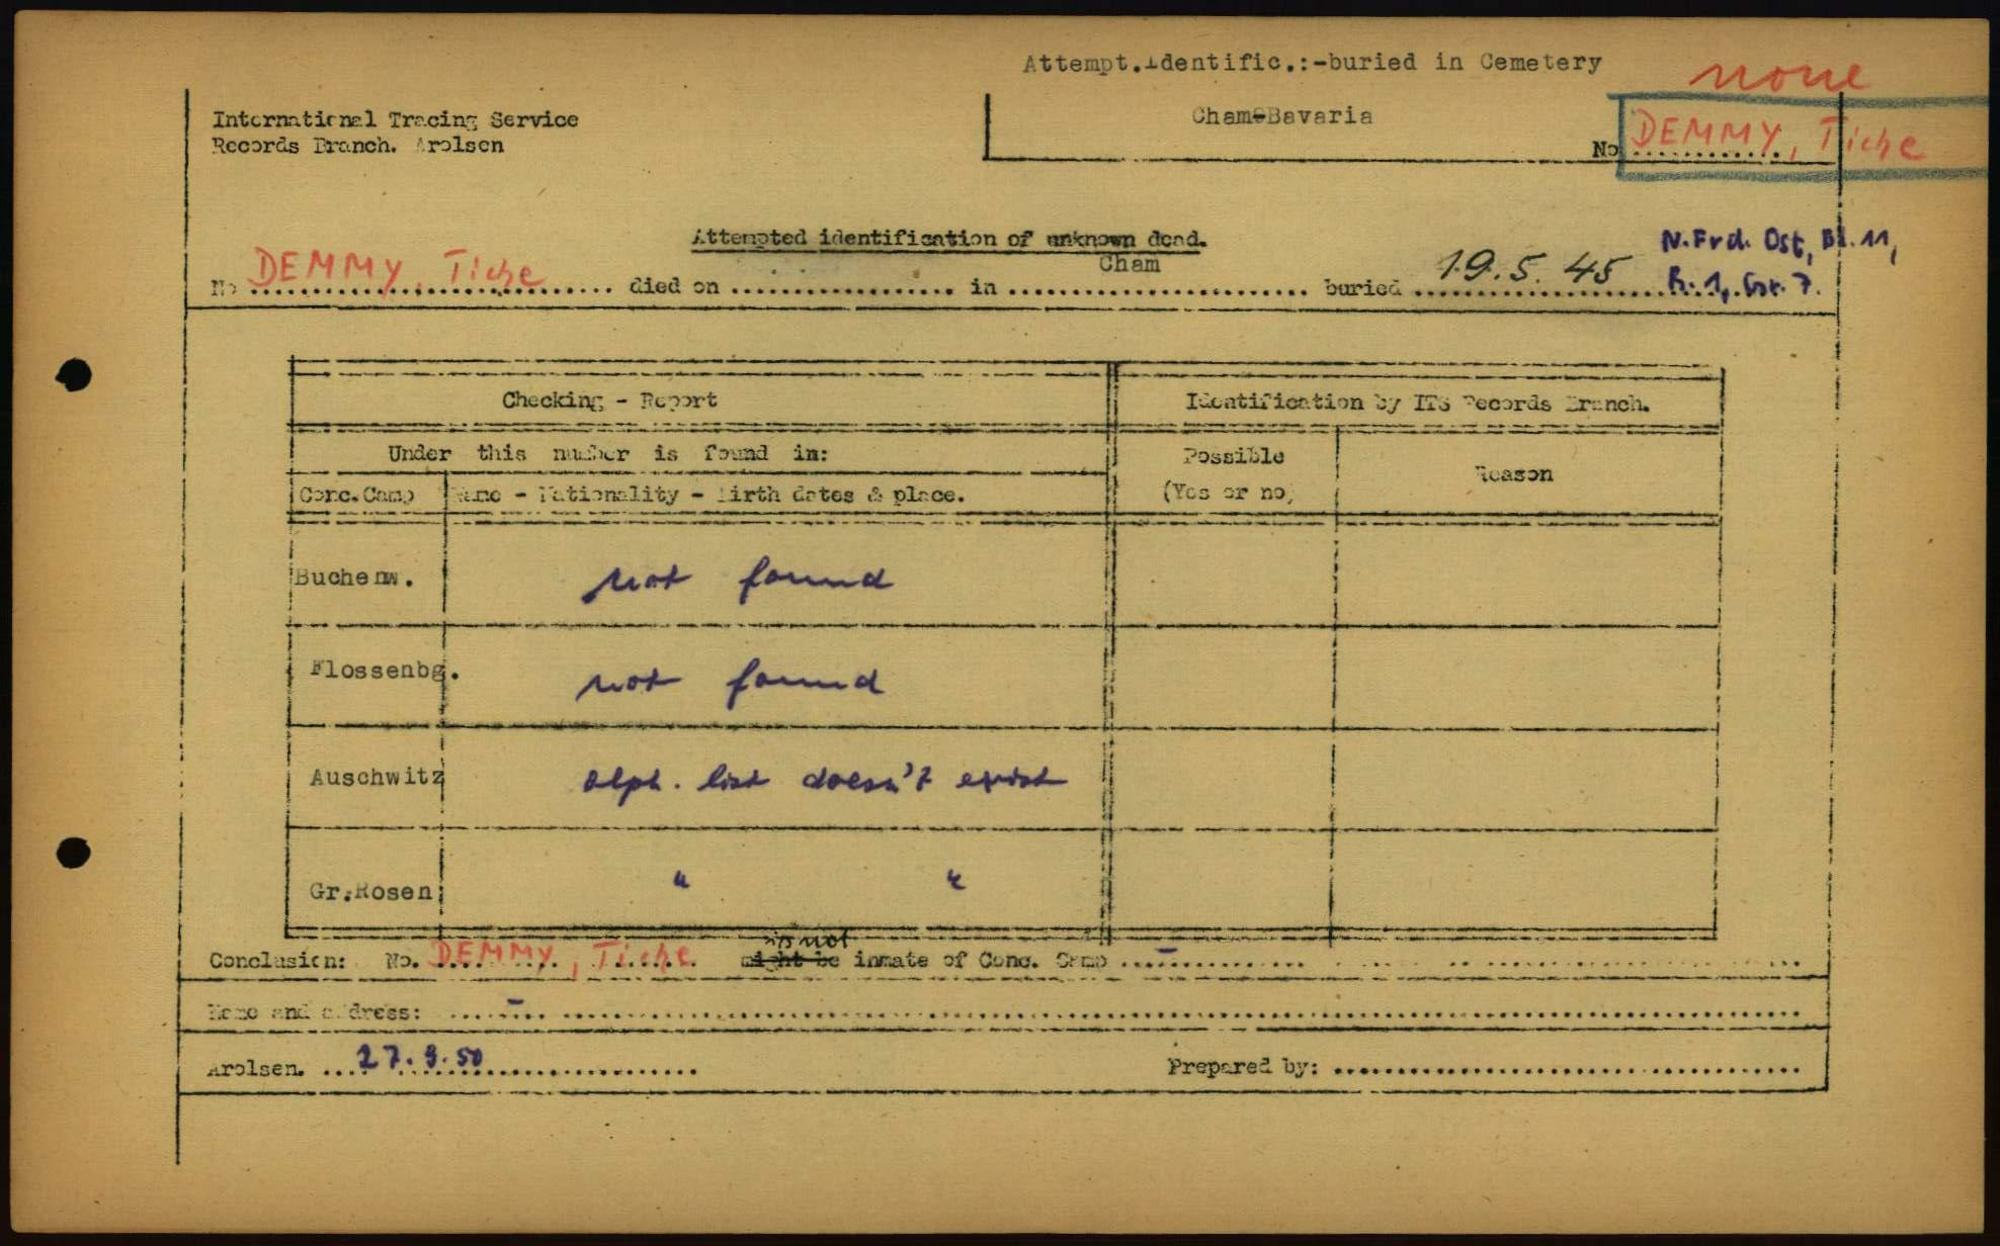 Attempt.identific.:-buried in Cemetery
none
International Tracing Service
Cham-Bavaria
Records Branch. Arolsen
No DEMMY, Tiche
Attempted identification of unknown dead.
N.Frd. Ost, Bl. 11,
Cham
No DEMMY, Tiche died on ................ in ................ buried 19.5.45 R. 1, Gr. 7.
Checking - Report
Identification by ITS Records Branch.
Under this number is found in:
Possible
Reason
Conc.Camp Name - Nationality - Birth dates & place. (Yes or no)
Buchenw. not found
Flossenbg. not found
Auschwitz alph. list doesn't exist
Gr.Rosen " "
is not
Conclusion: No. DEMMY, Tiche might be inmate of Conc. Camp - ................
Name and address: - ................
Arolsen. 27.9.50 Prepared by: ................